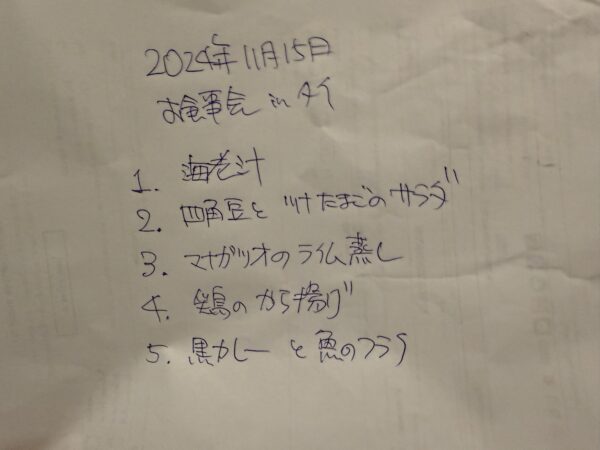 2024年11月15日
お食事会 in タイ
1. 海老汁
2. 四角豆と ゆでたまごのサラダ
3. マナガツオのライム蒸し
4. 鶏のから揚げ
5. 黒カレーと魚のフライ